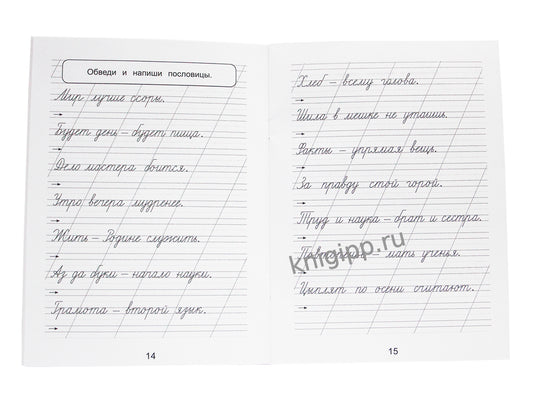 Обведи и напиши пословицы.
Мир лучше ссоры.
Будет день – будет пища.
Дело мастера боится.
Утро вечера мудренее.
Жить – Родине служить.
Аз да буки – начало науки.
Грамота – второй язык.
14
Хлеб – всему голова.
Шила в мешке не утаишь.
Факты – упрямая вещь.
За правду стой горой.
Труд и наука – брат и сестра.
Повторенье – мать ученья.
Цыплят по осени считают.
15
knigipp.ru